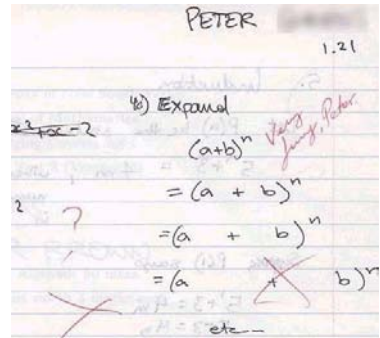 PETER
1.21
4c) Expand
x²+x-2
(a+b)ⁿ
Very funny, Peter.
= (a + b)ⁿ
2
?
= (a + b)ⁿ
= (a + b)ⁿ
etc...